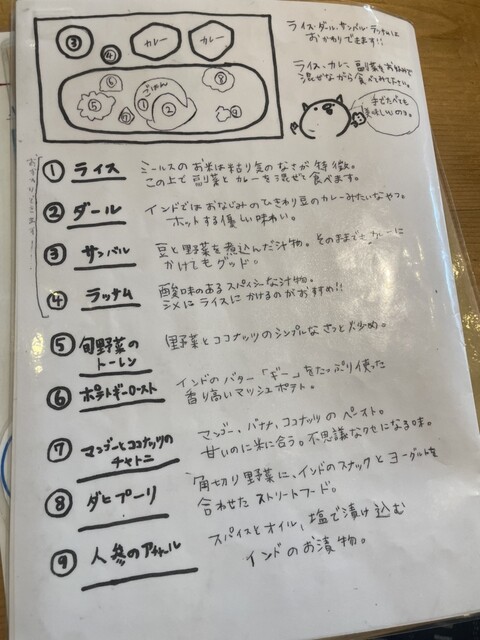 ライス・ダール・サンバル・ラッサムは
おかわりできます!!
ライス、カレー、副菜をお好みで
混ぜながら食べてみて下さい。
手でたべても
美味しいのよ。
③
④
カレー
カレー
⑥
ごはん
⑧
⑤
①
②
⑦
⑨
① ライス
ミールスのお米は粘り気のなさが特徴。
この上で副菜とカレーを混ぜて食べます。
② ダール
インドではおなじみのひきわり豆のカレーみたいなやつ。
ホットする優しい味わい。
③ サンバル
豆と野菜を煮込んだ汁物。そのままでもカレーに
かけてもグッド。
④ ラッサム
酸味のあるスパイシーな汁物。
シメにライスにかけるのがおすすめ!!
⑤ 旬野菜の
トーレン
野菜とココナッツのシンプルなさっと炒め。
⑥ ポテトギーロースト
インドのバター「ギー」をたっぷり使った
香り高いマッシュポテト。
⑦ マンゴーとココナッツの
チャトニ
マンゴー、バナナ、ココナッツのペースト。
甘いのに米に合う。不思議なクセになる味。
⑧ ダヒプーリ
角切り野菜に、インドのスナックとヨーグルトを
合わせたストリートフード。
⑨ 人参のアチャール
スパイスとオイル、塩で漬け込む
インドのお漬物。